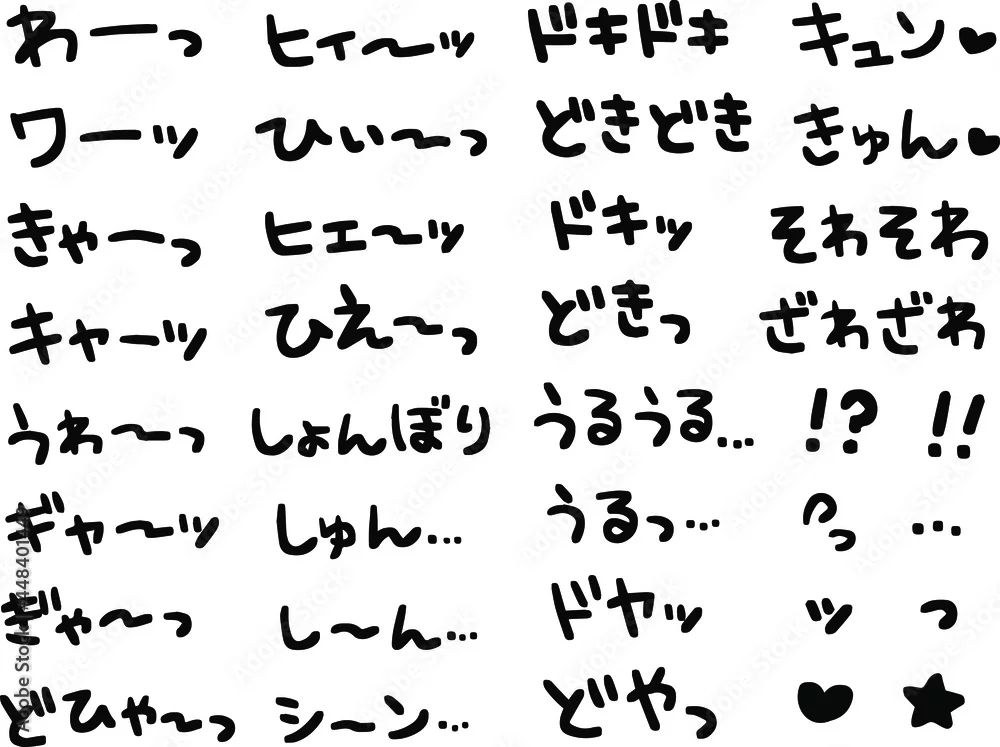 わーっ ヒィ〜ッ ドキドキ キュン♥
ワーッ ひぃ〜っ どきどき きゅん♥
きゃーっ ヒェ〜ッ ドキッ そわそわ
キャーッ ひえ〜っ どきっ ざわざわ
うわ〜っ しょんぼり うるうる… !? !!
ギャ〜ッ しゅん… うるっ… っ …
ぎゃ〜っ し〜ん… ドヤッ ッ っ
どひゃ〜っ シーン… どやっ ♥ ★
Adobe Stock | #448401448